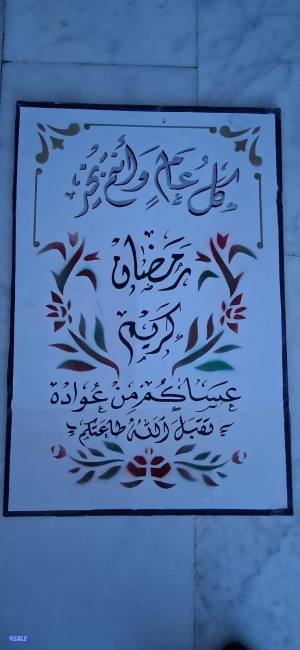 كل عام وأنتم بخير
رمضان
كريم
عساكم من عواده
تقبل الله طاعتكم
4SALE